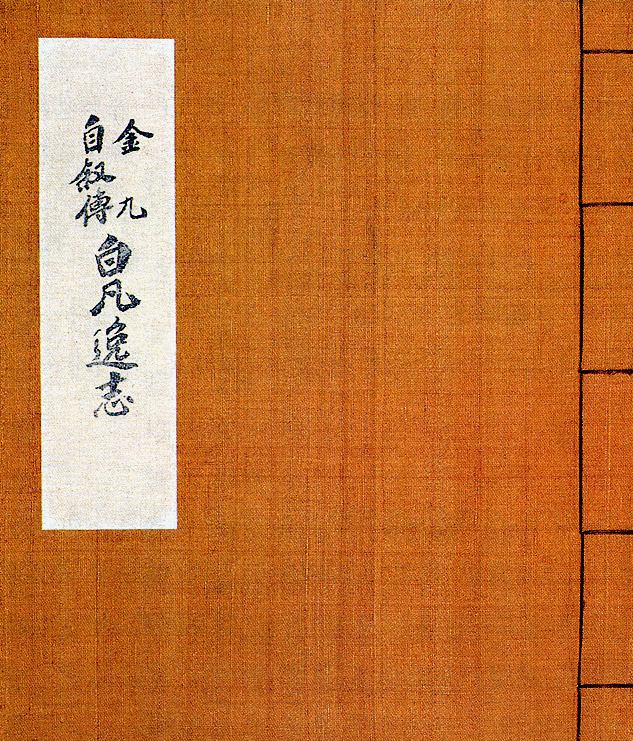 金九
自叙傳
白凡逸志